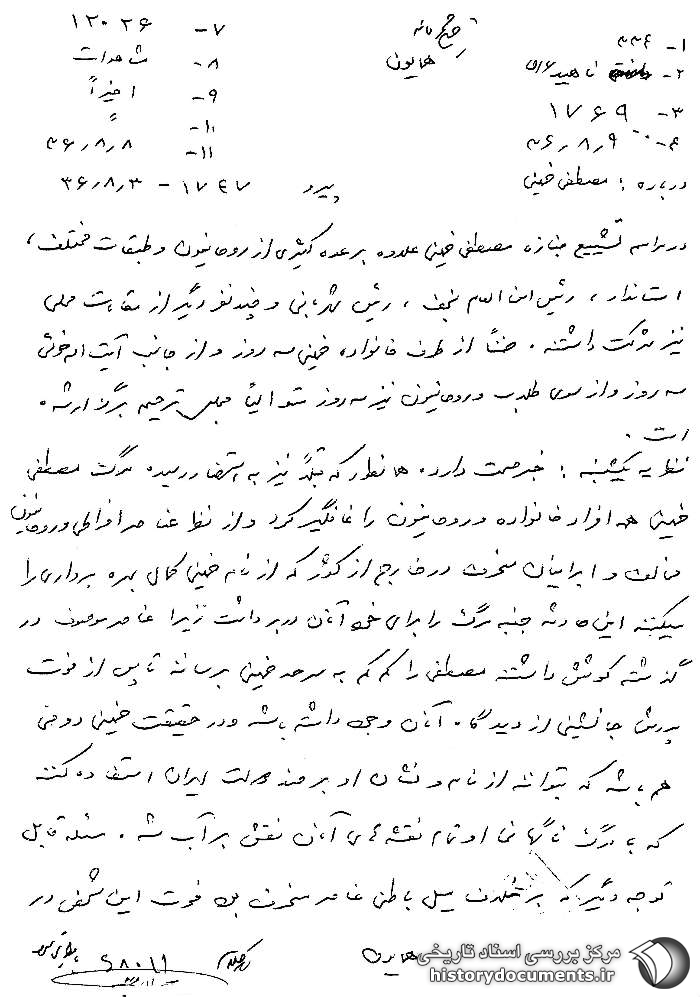 خیلی محرمانه
همایون
۱- ۳۳۴
۲- ناهید
۳- ۱۷۶۹
۴- ۳۶/۸/۹
۷- ۱۲۰۲۶
۸- شاهدات
۹- اخیراً
۱۰- "
۱۱- ۳۶/۸/۸
درباره : مصطفی خمینی
پیرو ۱۷۴۷ - ۳۶/۸/۳
در مراسم تشییع جنازه مصطفی خمینی علاوه بر عده کثیری از روحانیون و طبقات مختلف ،
استاندار ، رئیس امن العام نجف ، رئیس شهربانی و چند نفر دیگر از مقامات محلی
نیز شرکت داشتند . ضمناً از طرف خانواده خمینی سه روز و از جانب آیت اله خوئی
سه روز و از سوی طلاب و روحانیون نیز سه روز متوالیاً مجلس ترحیم برگزار شده
است .
نظریه یکشنبه : خبر صحت دارد همانطور که قبلاً نیز به استحضار رسیده مرگ مصطفی
خمینی همه افراد خانواده و روحانیون را غافلگیر کرد و از نظر عناصر افراطی و روحانیون
مخالف و ایرانیان منحرف در خارج از کشور که از نام خمینی کمال بهره برداری را
میکنند این حادثه جنبه مرگ را برای خود آنان در برداشت زیرا عناصر موصوف در
گذشته کوشش داشتند مصطفی را کم کم به سرحد خمینی برسانند تا پس از فوت
پدرش جانشینی از دیدگاه آنان وجود داشته باشد و در حقیقت خمینی دومی
هم باشد که بتوانند از نام و نشان او بر ضد دولت ایران استفاده کنند
که با مرگ ناگهانی او تمام نقشه های آنان نقش بر آب شد . مسئله قابل
توجه دیگر که بر خلاف میل باطنی عناصر منحرف بود فوت این شخص در
همایون
۶۸۰۱۱
مرکز بررسی اسناد تاریخی
historydocuments.ir